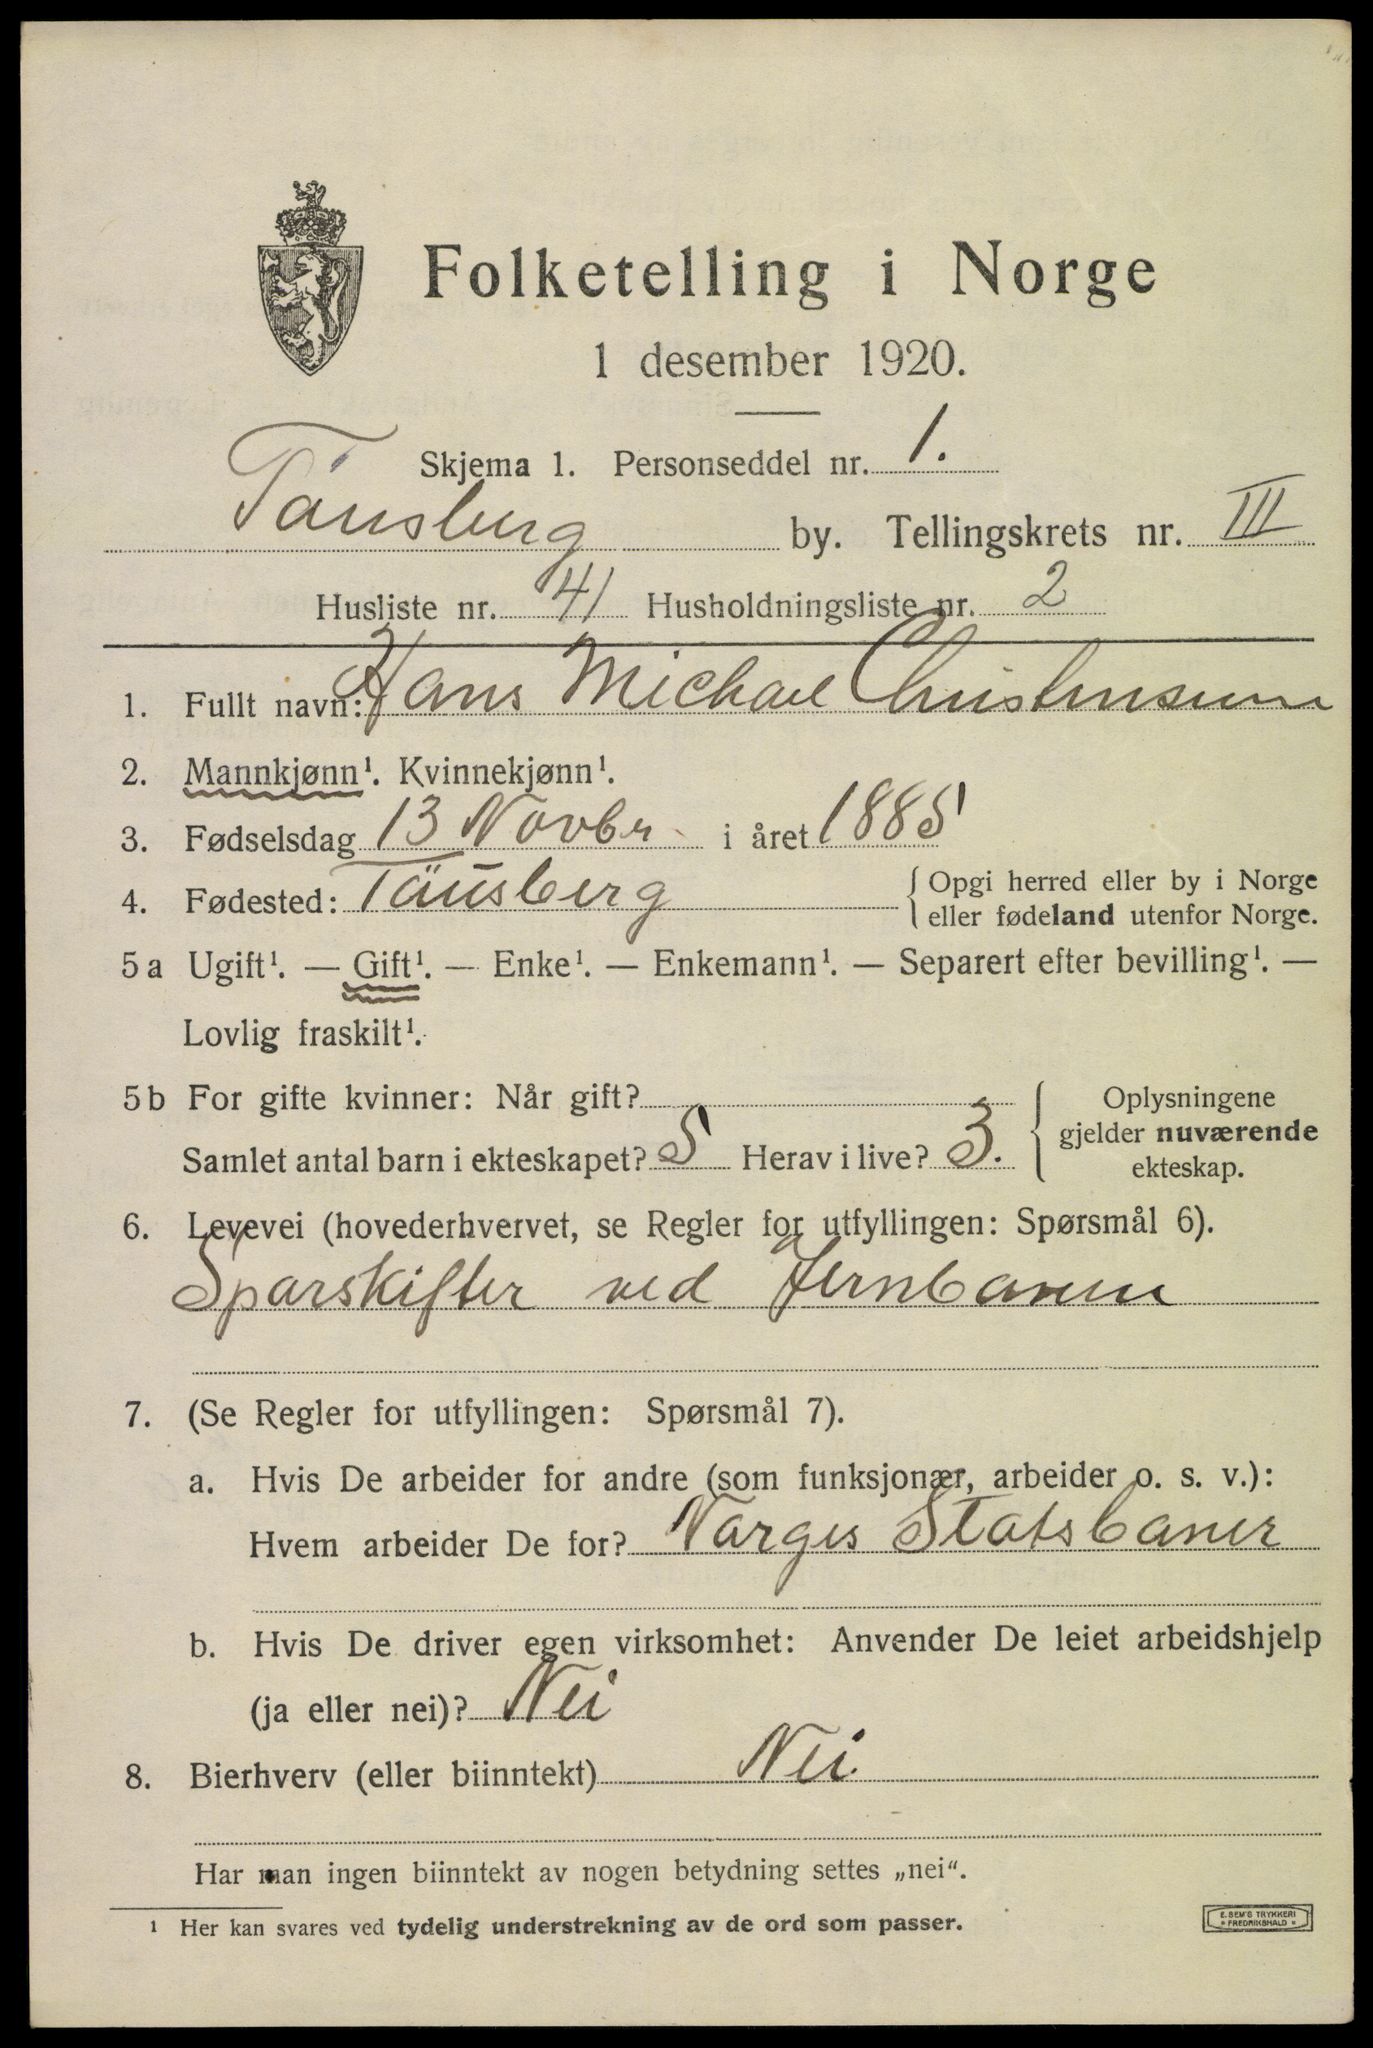 Folketelling i Norge
1 desember 1920.
Skjema 1. Personseddel nr. 1.
Tønsberg by. Tellingskrets nr. III
Husliste nr. 41 Husholdningsliste nr. 2
1. Fullt navn: Hans Michael Christensen
2. Mannkjønn¹. Kvinnekjønn¹.
3. Fødselsdag 13 Novbr i året 1885
4. Fødested: Tønsberg { Opgi herred eller by i Norge
eller fødeland utenfor Norge.
5a Ugift¹. — Gift¹. — Enke¹. — Enkemann¹. — Separert efter bevilling¹. —
Lovlig fraskilt¹.
5b For gifte kvinner: Når gift?
Samlet antal barn i ekteskapet? 5 Herav i live? 3.
{ Oplysningene
gjelder nuværende
ekteskap.
6. Levevei (hovederhvervet, se Regler for utfyllingen: Spørsmål 6).
Sporskifter ved Jernbanen
7. (Se Regler for utfyllingen: Spørsmål 7).
a. Hvis De arbeider for andre (som funksjonær, arbeider o. s. v.):
Hvem arbeider De for? Norges Statsbaner
b. Hvis De driver egen virksomhet: Anvender De leiet arbeidshjelp
(ja eller nei)? Nei
8. Bierhverv (eller biinntekt) Nei.
Har man ingen biinntekt av nogen betydning settes „nei“.
¹ Her kan svares ved tydelig understrekning av de ord som passer.
E. SEM'S TRYKKERI
* FREDRIKSHALD *